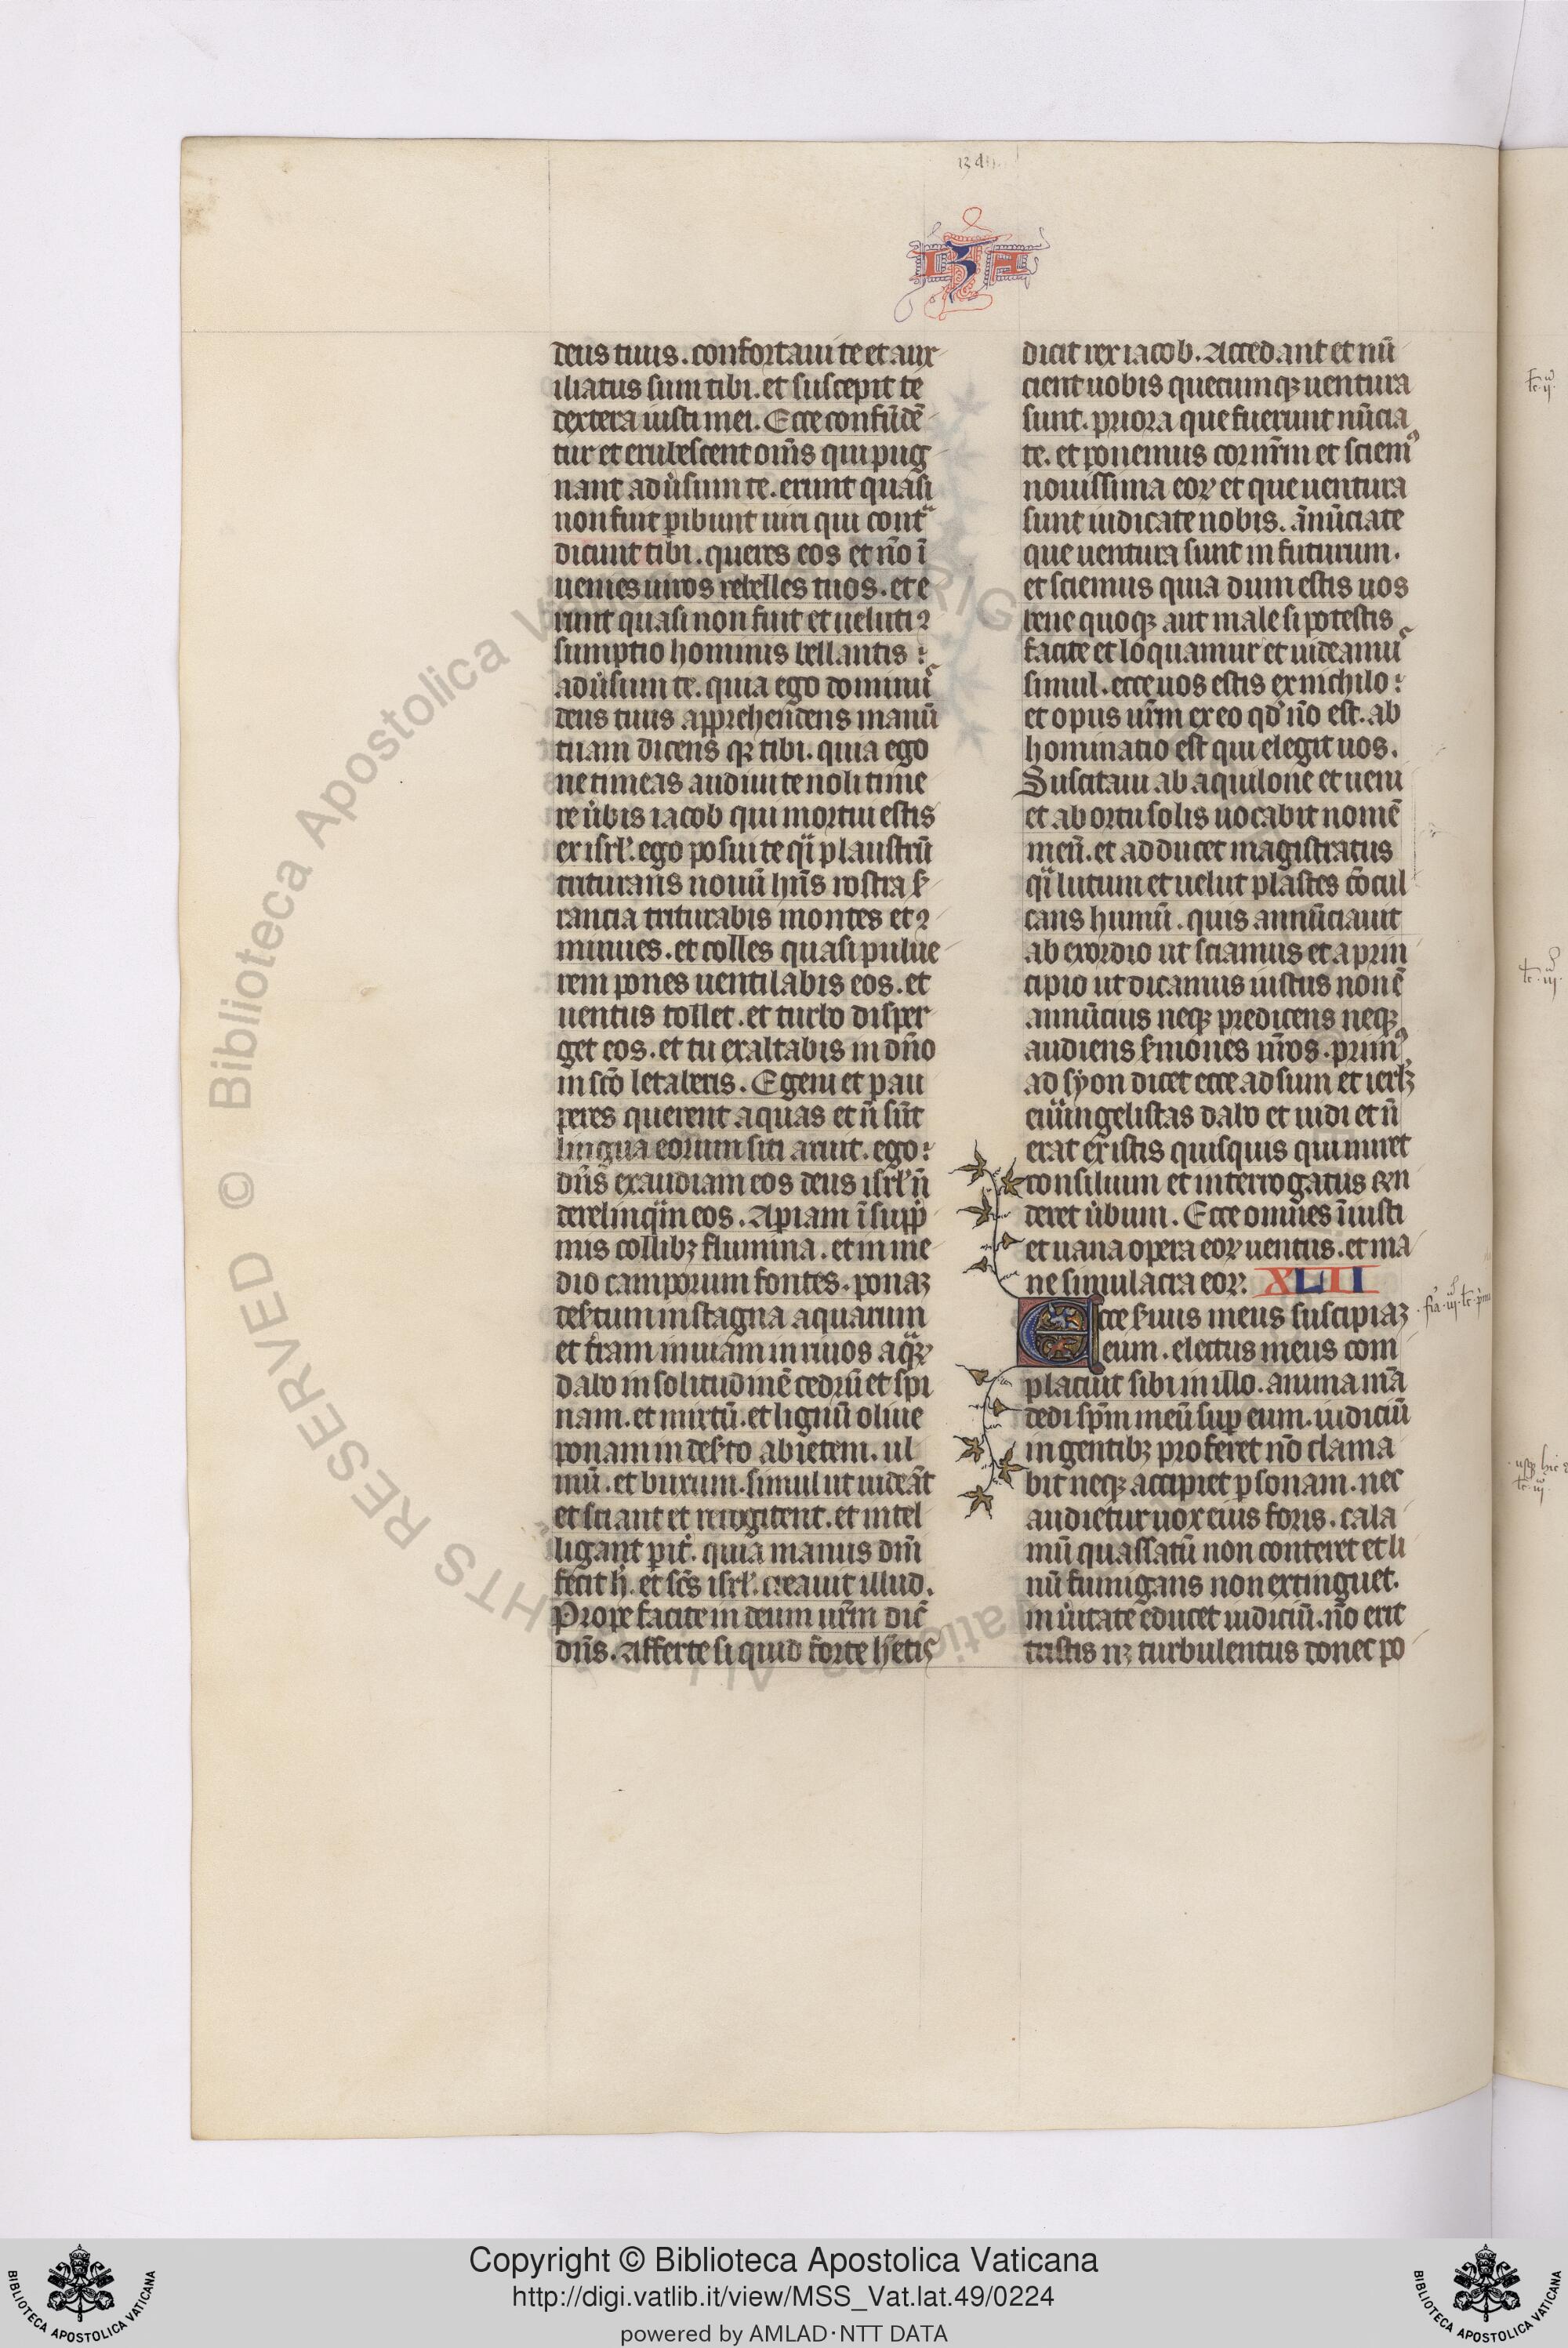 ISA
deus tuus. confortaui te et aux
iliatus sum tibi. et suscepit te
dextera iusti mei. Ecce confūdē
tur et erubescent om̄s qui pug
nant adu̓sum te. erunt quasi
non sint ꝑibunt uiri qui contᵃ
dicunt tibi. queres eos et nō ī
uenies uiros rebelles tuos. et e
runt quasi non sint et ueluti ꝯ
sumptio hominis bellantis
adu̓sum te. quia ego dominꝰ
deus tuus apprehendens manū
tuam dicensqꝫ tibi. quia ego
ne timeas audiui te noli time
re u̓bis iacob qui mortui estis
ex isrl̓. ego posui te qͣi plaustrū
triturans nouū hn̄s rostra s̓
rancia triturabis montes et ꝯ
minues. et colles quasi pulue
rem pones uentilabis eos. et
uentus tollet. et turbo disper
get eos. et tu exaltabis in dn̄o
in scō letaberis. Egeni et pau
peres querent aquas et n̄ sūt
lingua eorum siti aruit. ego
dn̄s exaudiam eos deus isrl̓ n̄
derelinqͣm eos. Apiam ī supp̄
mis collibꝫ flumina. et in me
dio camporum fontes. ponaꝫ
des̓tum in stagna aquarum
et t̓ram inuiam in riuos aqͣꝝ
dabo in solitudinē cedrū et spi
nam. et mirtū. et lignū oliue
ponam in des̓to abietem. ul
mū. et buxum. simul ut uideāt
et sciant et recogitent. et intel
ligant pit̓. quia manus dn̄i
fecit h̄. et scs̄ isrl̓. creauit illud.
Prope facite iudicium ur̄m dic̄
dn̄s. Afferte si quid forte h̓etis
dicit rex iacob. Accedant et nū
cient uobis quecumqꝫ uentura
sunt. priora que fuerunt nūcia
te. et ponemus cor nr̄m et sciemꝰ
nouissima eoꝝ et que uentura
sunt iudicate nobis. ānūciate
que uentura sunt in futurum.
et sciemus quia dii estis uos
bene quoqꝫ aut male si potestis
facite et loquamur et uideamꝰ
simul. ecce uos estis ex nichilo
et opus ur̄m ex eo qd̓ nō est. ab
hominatio est qui elegit uos.
Suscitaui ab aquilone et ueni
et ab ortu solis uocabit nomē
meū. et adducet magistratus
qͣi lutum et uelut plastes cōcul
cans humū. quis annūciauit
ab exordio ut sciamus et a prin
cipio ut dicamus iustus non ē
annūcius neqꝫ predicens neqꝫ
audiens s̓mones ur̄os. primꝰ
ad syon dicet ecce adsum et ierlꝫ
euͣngelistas dabo et uidi et n̄
erat ex istis quisquis qui iniret
consilium et interrogatus ren
deret u̓bum. Ecce omnes īiusti
et uana opera eoꝝ uentus. et ina
ne simulacra eoꝝ. XLII
Ecce s̓uus meus suscipiaꝫ
eum. electus meus com
placuit sibi in illo. anima mā
dedi sp̄m meū suꝑ eum. iudiciū
in gentibꝫ proferet nō clama
bit neqꝫ accipiet ꝑsonam. nec
audietur uox eius foris. cala
mū quassatū non conteret et li
nū fumigans non extinguet.
in u̓itate educet iudiciū. nō erit
tristis nꝫ turbulentus donec po
© Biblioteca Apostolica Vaticana ALL RIGHTS RESERVED
Copyright © Biblioteca Apostolica Vaticana
http://digi.vatlib.it/view/MSS_Vat.lat.49/0224
powered by AMLAD·NTT DATA
BIBLIOTECA APOSTOLICA VATICANA
BIBLIOTECA APOSTOLICA VATICANA